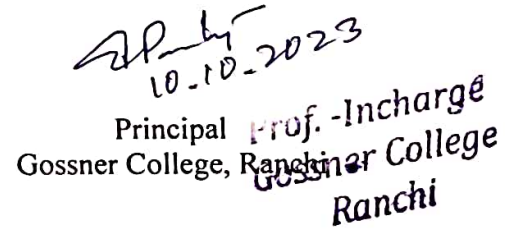 10.10.2023
Principal
Gossner College, Ranchi
Prof. -Incharge
Gossner College
Ranchi